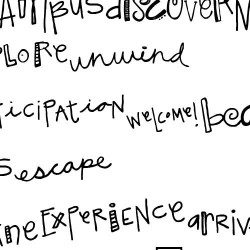 discover
PLORE unwind
TICIPATION welcome! bea
S escape
INE EXPERIENCE arriv